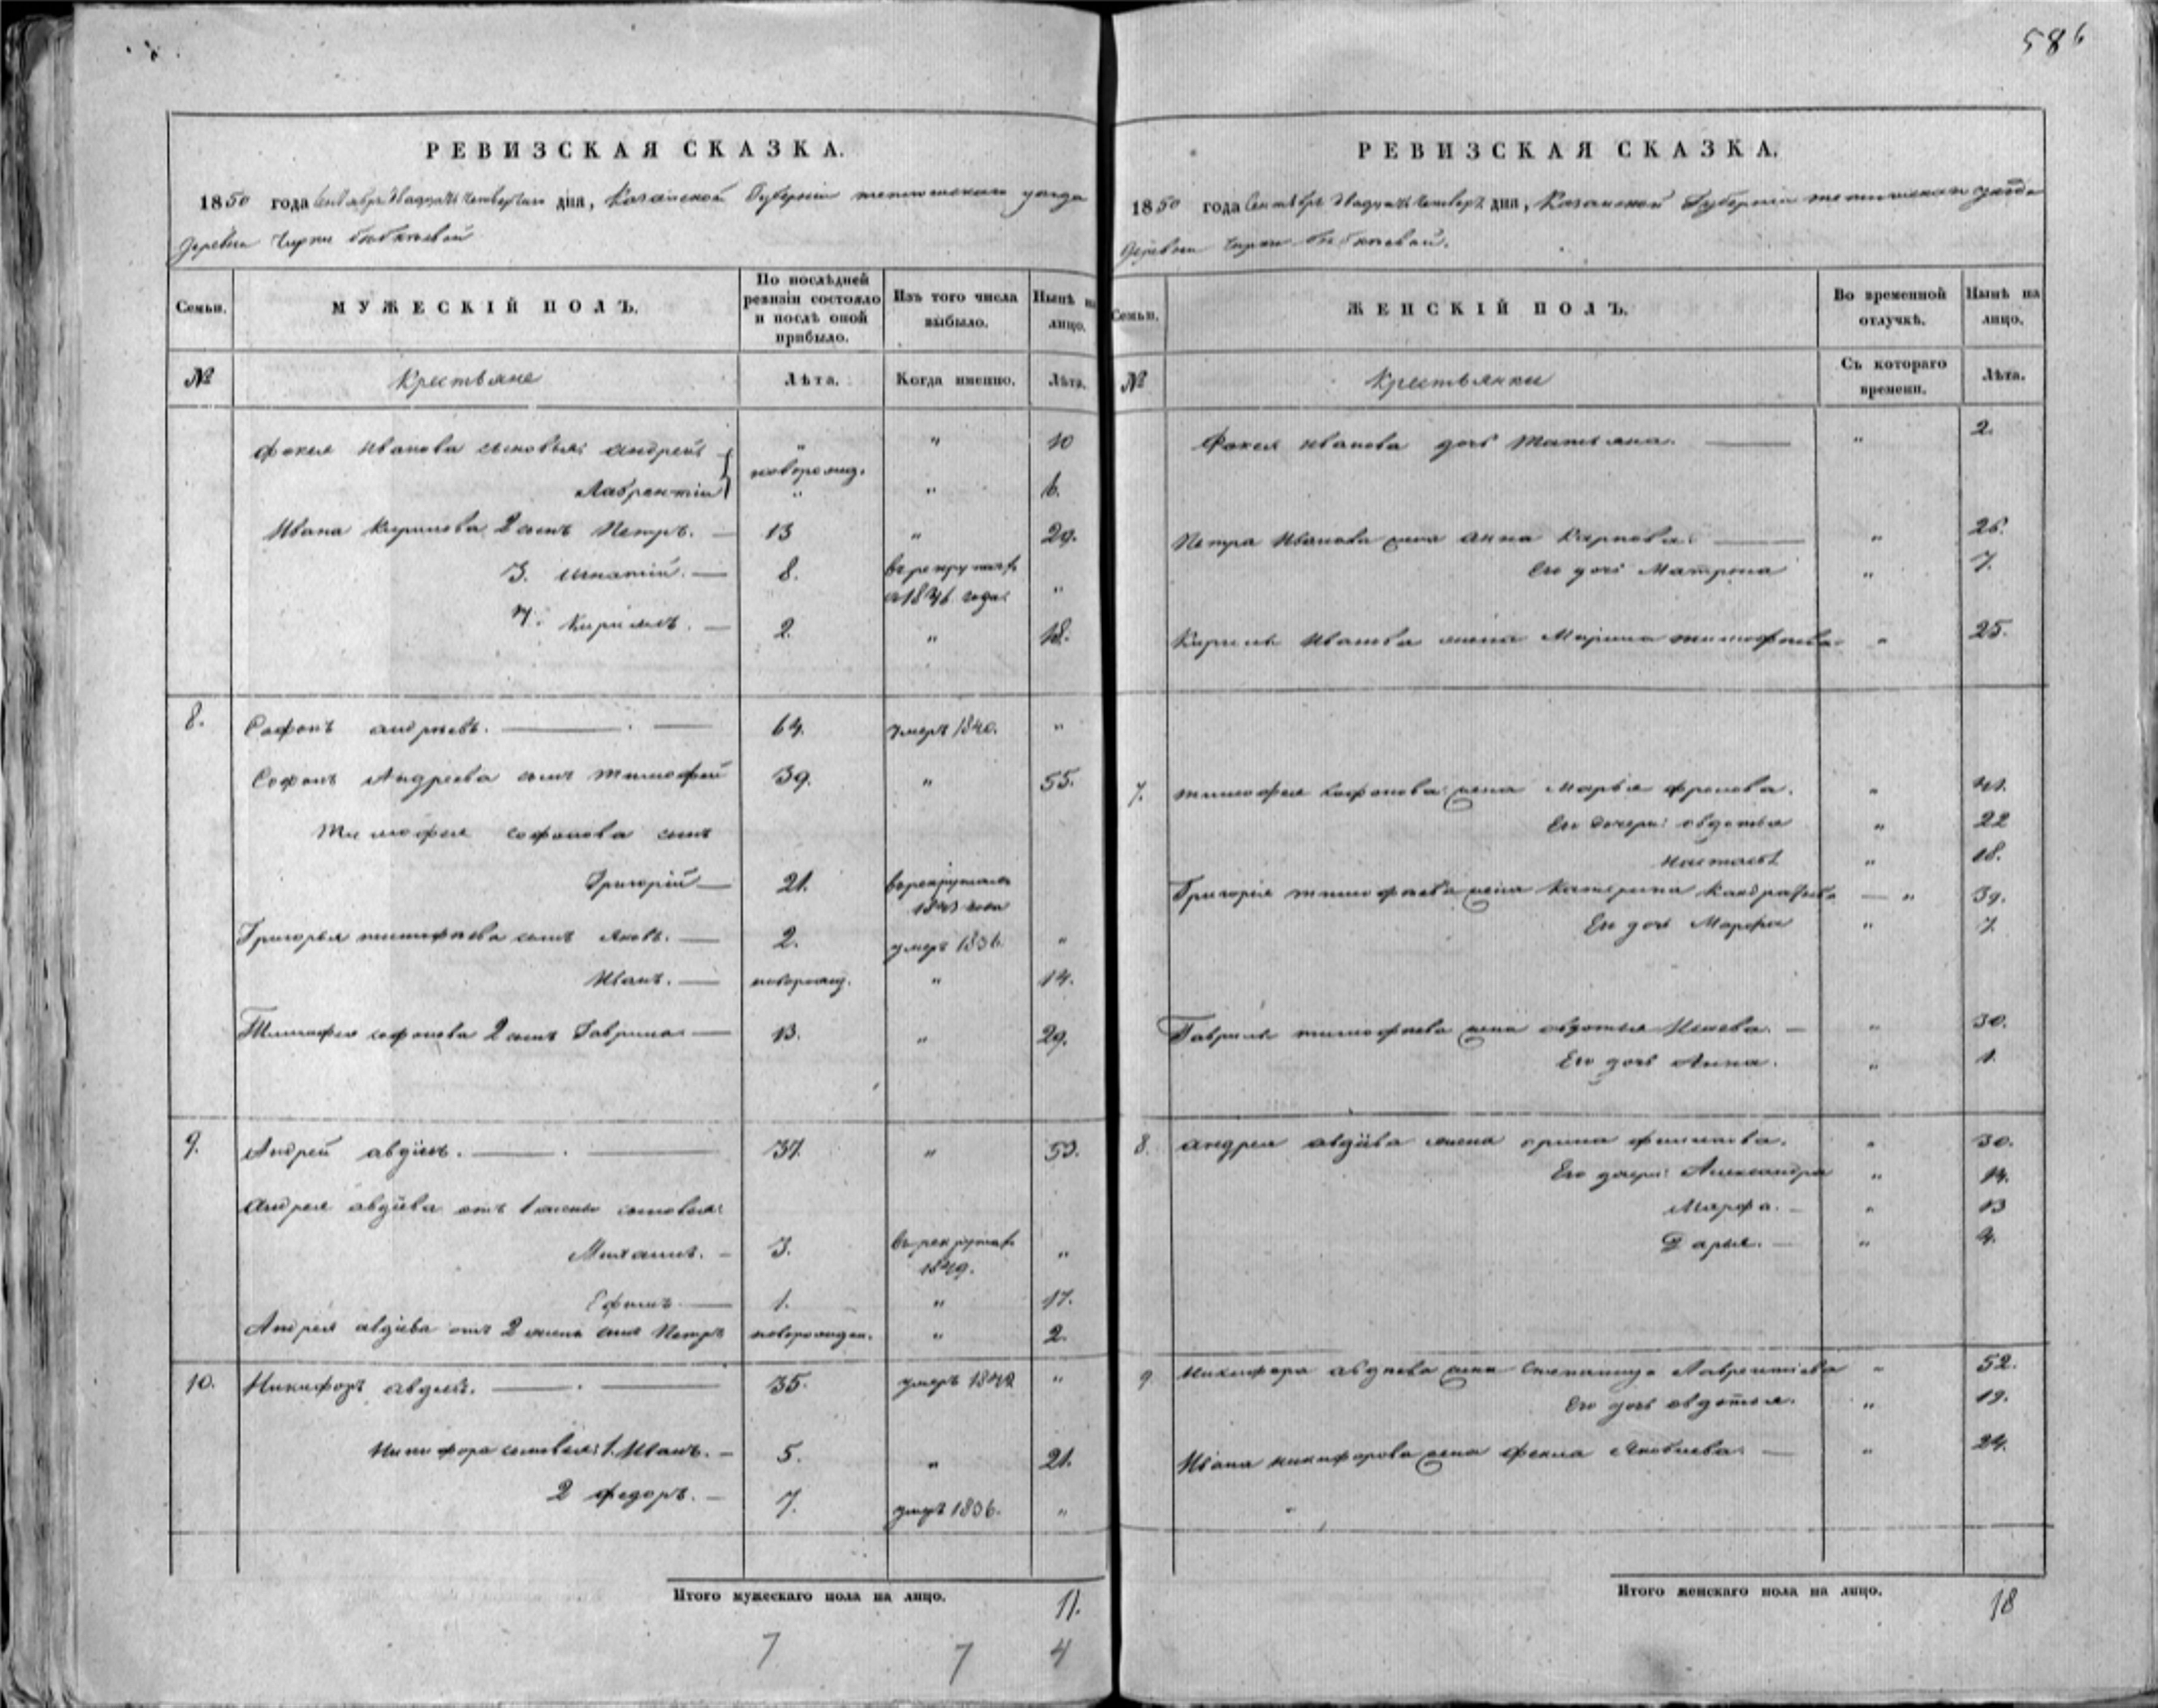 586
РЕВИЗСКАЯ СКАЗКА.
1850 года Сентября двадцать четвертаго дня, Казанской Губернии тетюшскаго уезда
Деревни Чирки бебкеевой
Семьи. МУЖЕСКІЙ ПОЛЪ. По послѣдней ревизіи состояло и послѣ оной прибыло. Изъ того числа выбыло. Нынѣ на лицо.
№ Крестьяне Лѣта. Когда именно. Лѣта.
Фокея Иванова сыновья: андрей " " 10
новорожд.
Лаврентій " " 6.
Ивана Кирилова 2 сынъ Петръ. — 13 " 29.
3. Игнатій. — 8. в рекрутахъ
с 1846 года "
4. Кирилъ. — 2. " 18.
8. Софонъ андреевъ. — 64. умеръ 1840. "
Софона Андреева сынъ тимофей 39. " 55.
Тимофея софонова сынъ
Григорій — 21. в рекрутахъ
1843 года
Григорья тимофеева сынъ Яковъ. — 2. умеръ 1836 "
Иванъ. — новорожд. " 14.
Тимофея софонова 2 сынъ Гаврила — 13. " 29.
9. Андрей авдеевъ. — 37. " 53.
Андрея авдеева отъ 1 жены сыновья:
Михаилъ. — 3. в рекрутахъ "
1849.
Ефимъ — 1. " 17.
Андрея авдеева отъ 2 жены сынъ Петръ новорожден. " 2.
10. Никифоръ авдеевъ. — 35. умеръ 1842 "
Никифора сыновья: 1. Иванъ. — 5. " 21.
2 федоръ. — 7. умеръ 1836. "
Итого мужескаго пола на лицо. 11.
7 7 4
РЕВИЗСКАЯ СКАЗКА.
1850 года Сентября двадцать четверт. дня, Казанской Губернии тетюшскаго уезда
Деревни Чирки бебкеевой.
Семьи. ЖЕНСКІЙ ПОЛЪ. Во временной отлучкѣ. Нынѣ на лицо.
№ Крестьянки Съ котораго времени. Лѣта.
Фокея иванова дочь Татьяна. — " 2.
Петра Иванова жена анна Карпова. — " 26.
Его дочь Матрена " 7.
Кирила Иванова жена Марина тимофеева " 25.
7. тимофея софонова жена Марья фролова. " 41.
Его дочери: авдотья " 22
Настасья " 18.
Григорія тимофеева жена Катерина Кандратьева — " 39.
Его дочь Марфа " 7.
Гаврила тимофеева жена авдотья Исаева. — " 30.
Его дочь Анна. " 1.
8. андрея авдеева жена орина филипова. " 30.
Его дочери: Александра " 14.
Марфа. — " 13
Дарья. — " 4.
9 Никифора авдеева жена Степанида Лаврентіева " 52.
Его дочь авдотья. " 19.
Ивана никифорова жена фекла Яковлева — " 24.
"
Итого женскаго пола на лицо. 18